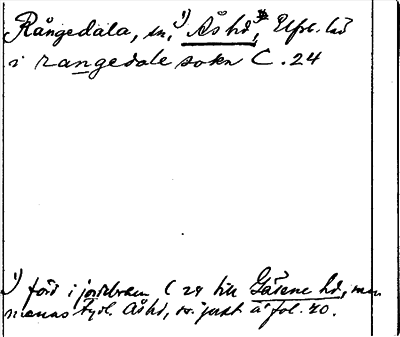 Rångedala, sn, ¹) Ås hd, Elfsb. län
i rangedale sokn C. 24
¹) förd i jordeboken C 24 till Gäsene hd, men
menas tydl. Ås hd, se. just å fol. 20.